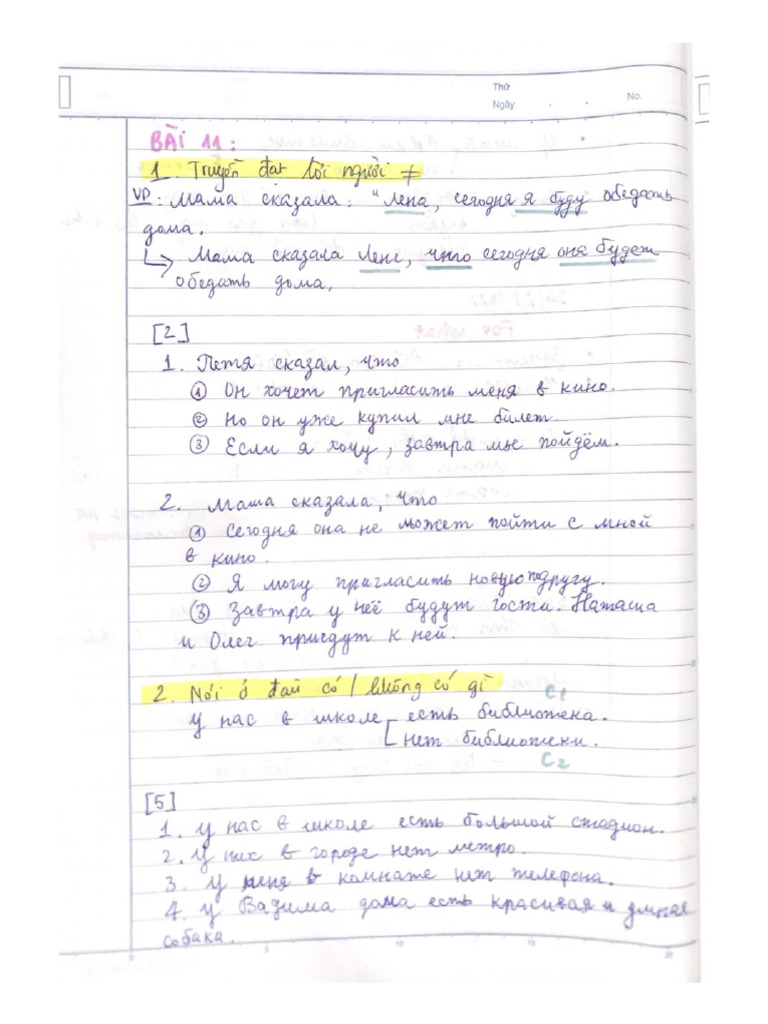 Thứ
Ngày . . No.
BÀI 11:
1. Truyền đạt lời người ≠
VD: Мама сказала: "Лена, сегодня я буду обедать
дома.
↳ Мама сказала Лене, что сегодня она будет
обедать дома.
[2]
1. Петя сказал, что
① Он хочет пригласить меня в кино.
② Но он уже купил мне билет.
③ Если я хочу, завтра мы пойдём.
2. Маша сказала, что
① Сегодня она не может пойти с мной
в кино.
② Я могу пригласить новую подругу.
③ Завтра у неё будут гости. Наташа
и Олег приедут к ней.
2. Nói ở đâu có / không có gì
C1
У нас в школе есть библиотека.
нет библиотеки.
C2
[5]
1. У нас в школе есть большой стадион.
2. У них в городе нет метро.
3. У меня в комнате нет телефона.
4. У Вадима дома есть красивая и умная
собака.
5 10 15 20